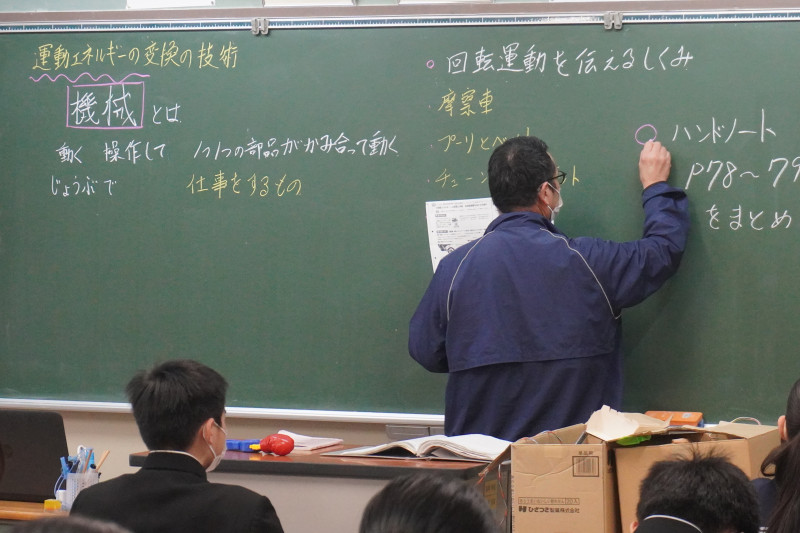 運動エネルギーの変換の技術
機械とは
動く 操作して 1つ1つの部品がかみ合って動く
じょうぶで 仕事をするもの
○ 回転運動を伝えるしくみ
・摩察車
・プーリとベルト
・チェーン ット
○ ハンドノート
P78～79
をまとめ